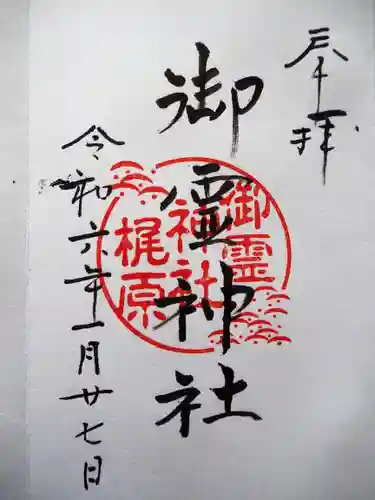 奉拝
御霊神社
令和六年一月廿七日
御霊
神社
梶原